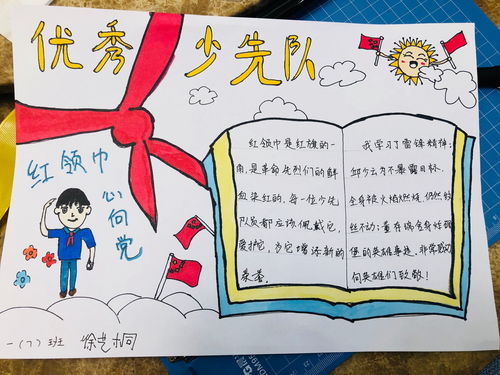 优秀少先队
红领巾
心向党
红领巾是红旗的一
角,是革命先烈们的鲜
血染红的,每一位少先
队员都应该佩戴它,
爱护它,为它增添新的
荣誉.
我学习了雷锋精神;
邱少云为不暴露目标.
全身被火焰燃烧.仍然纹
丝不动;董存瑞舍身炸碉
堡的英雄事迹.非常感动
向英雄们致敬!
一(7)班 徐艺桐